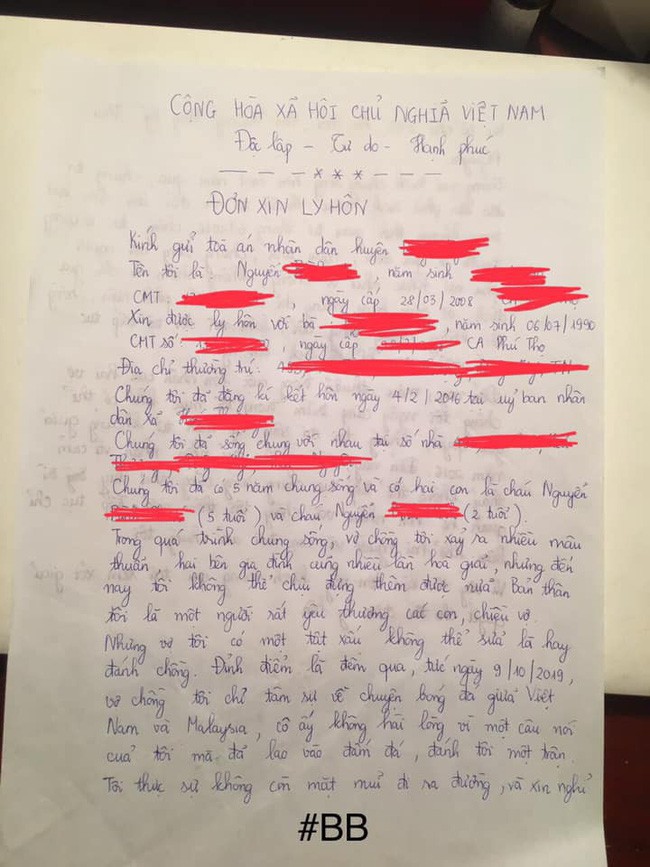 CỘNG HÒA XÃ HỘI CHỦ NGHĨA VIỆT NAM
Độc lập - Tự do - Hạnh phúc
— — — * * * — — —
ĐƠN XIN LY HÔN
Kính gửi toà án nhân dân huyện
Tên tôi là : Nguyễn , năm sinh
CMT : , ngày cấp 28/03/2008
Xin được ly hôn với bà , năm sinh 06/07/1990
CMT số : , ngày cấp CA Phú Thọ
Địa chỉ thường trú :
Chúng tôi đã đăng kí kết hôn ngày 4/2/2016 tại uỷ ban nhân
dân xã
Chúng tôi đã sống chung với nhau tại số nhà
Chúng tôi đã có 5 năm chung sống và có hai con là cháu Nguyễn
(5 tuổi) và cháu Nguyễn (2 tuổi).
Trong quá trình chung sống, vợ chồng tôi xảy ra nhiều mâu
thuẫn, hai bên gia đình cũng nhiều lần hoà giải, nhưng đến
nay tôi không thể chịu đựng thêm được nữa. Bản thân
tôi là một người rất yêu thương các con, chiều vợ.
Nhưng vợ tôi có một tật xấu không thể sửa là hay
đánh chồng. Đỉnh điểm là đêm qua, tức ngày 9/10/2019,
vợ chồng tôi chỉ tâm sự về chuyện bóng đá giữa Việt
Nam và Malaysia, cô ấy không hài lòng vì một câu nói
của tôi mà đã lao vào đấm đá, đánh tôi một trận.
Tôi thực sự không còn mặt mũi đi ra đường, và xin nghỉ
#BB